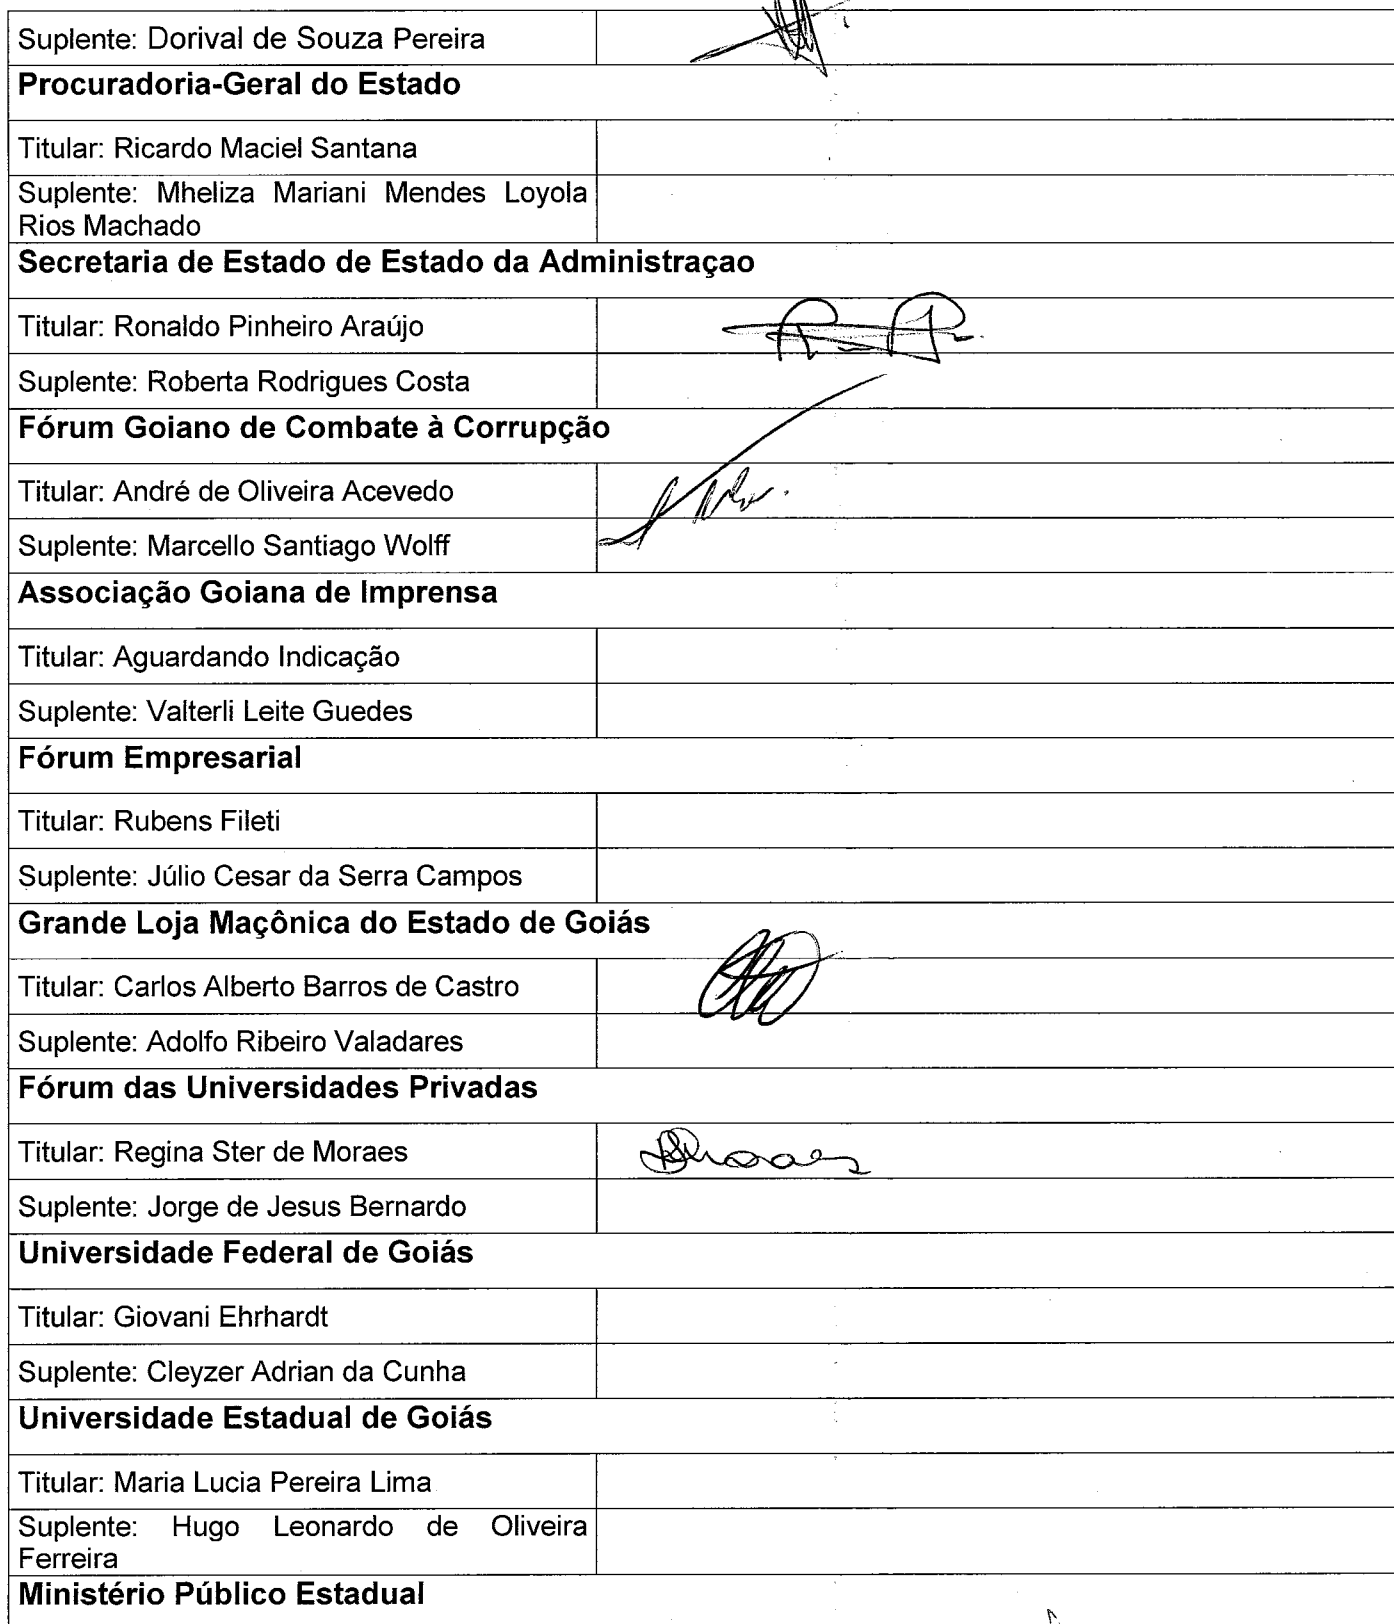 Suplente: Dorival de Souza Pereira
Procuradoria-Geral do Estado
Titular: Ricardo Maciel Santana
Suplente: Mheliza Mariani Mendes Loyola
Rios Machado
Secretaria de Estado de Estado da Administraçao
Titular: Ronaldo Pinheiro Araújo
Suplente: Roberta Rodrigues Costa
Fórum Goiano de Combate à Corrupção
Titular: André de Oliveira Acevedo
Suplente: Marcello Santiago Wolff
Associação Goiana de Imprensa
Titular: Aguardando Indicação
Suplente: Valterli Leite Guedes
Fórum Empresarial
Titular: Rubens Fileti
Suplente: Júlio Cesar da Serra Campos
Grande Loja Maçônica do Estado de Goiás
Titular: Carlos Alberto Barros de Castro
Suplente: Adolfo Ribeiro Valadares
Fórum das Universidades Privadas
Titular: Regina Ster de Moraes
Suplente: Jorge de Jesus Bernardo
Universidade Federal de Goiás
Titular: Giovani Ehrhardt
Suplente: Cleyzer Adrian da Cunha
Universidade Estadual de Goiás
Titular: Maria Lucia Pereira Lima
Suplente: Hugo Leonardo de Oliveira
Ferreira
Ministério Público Estadual